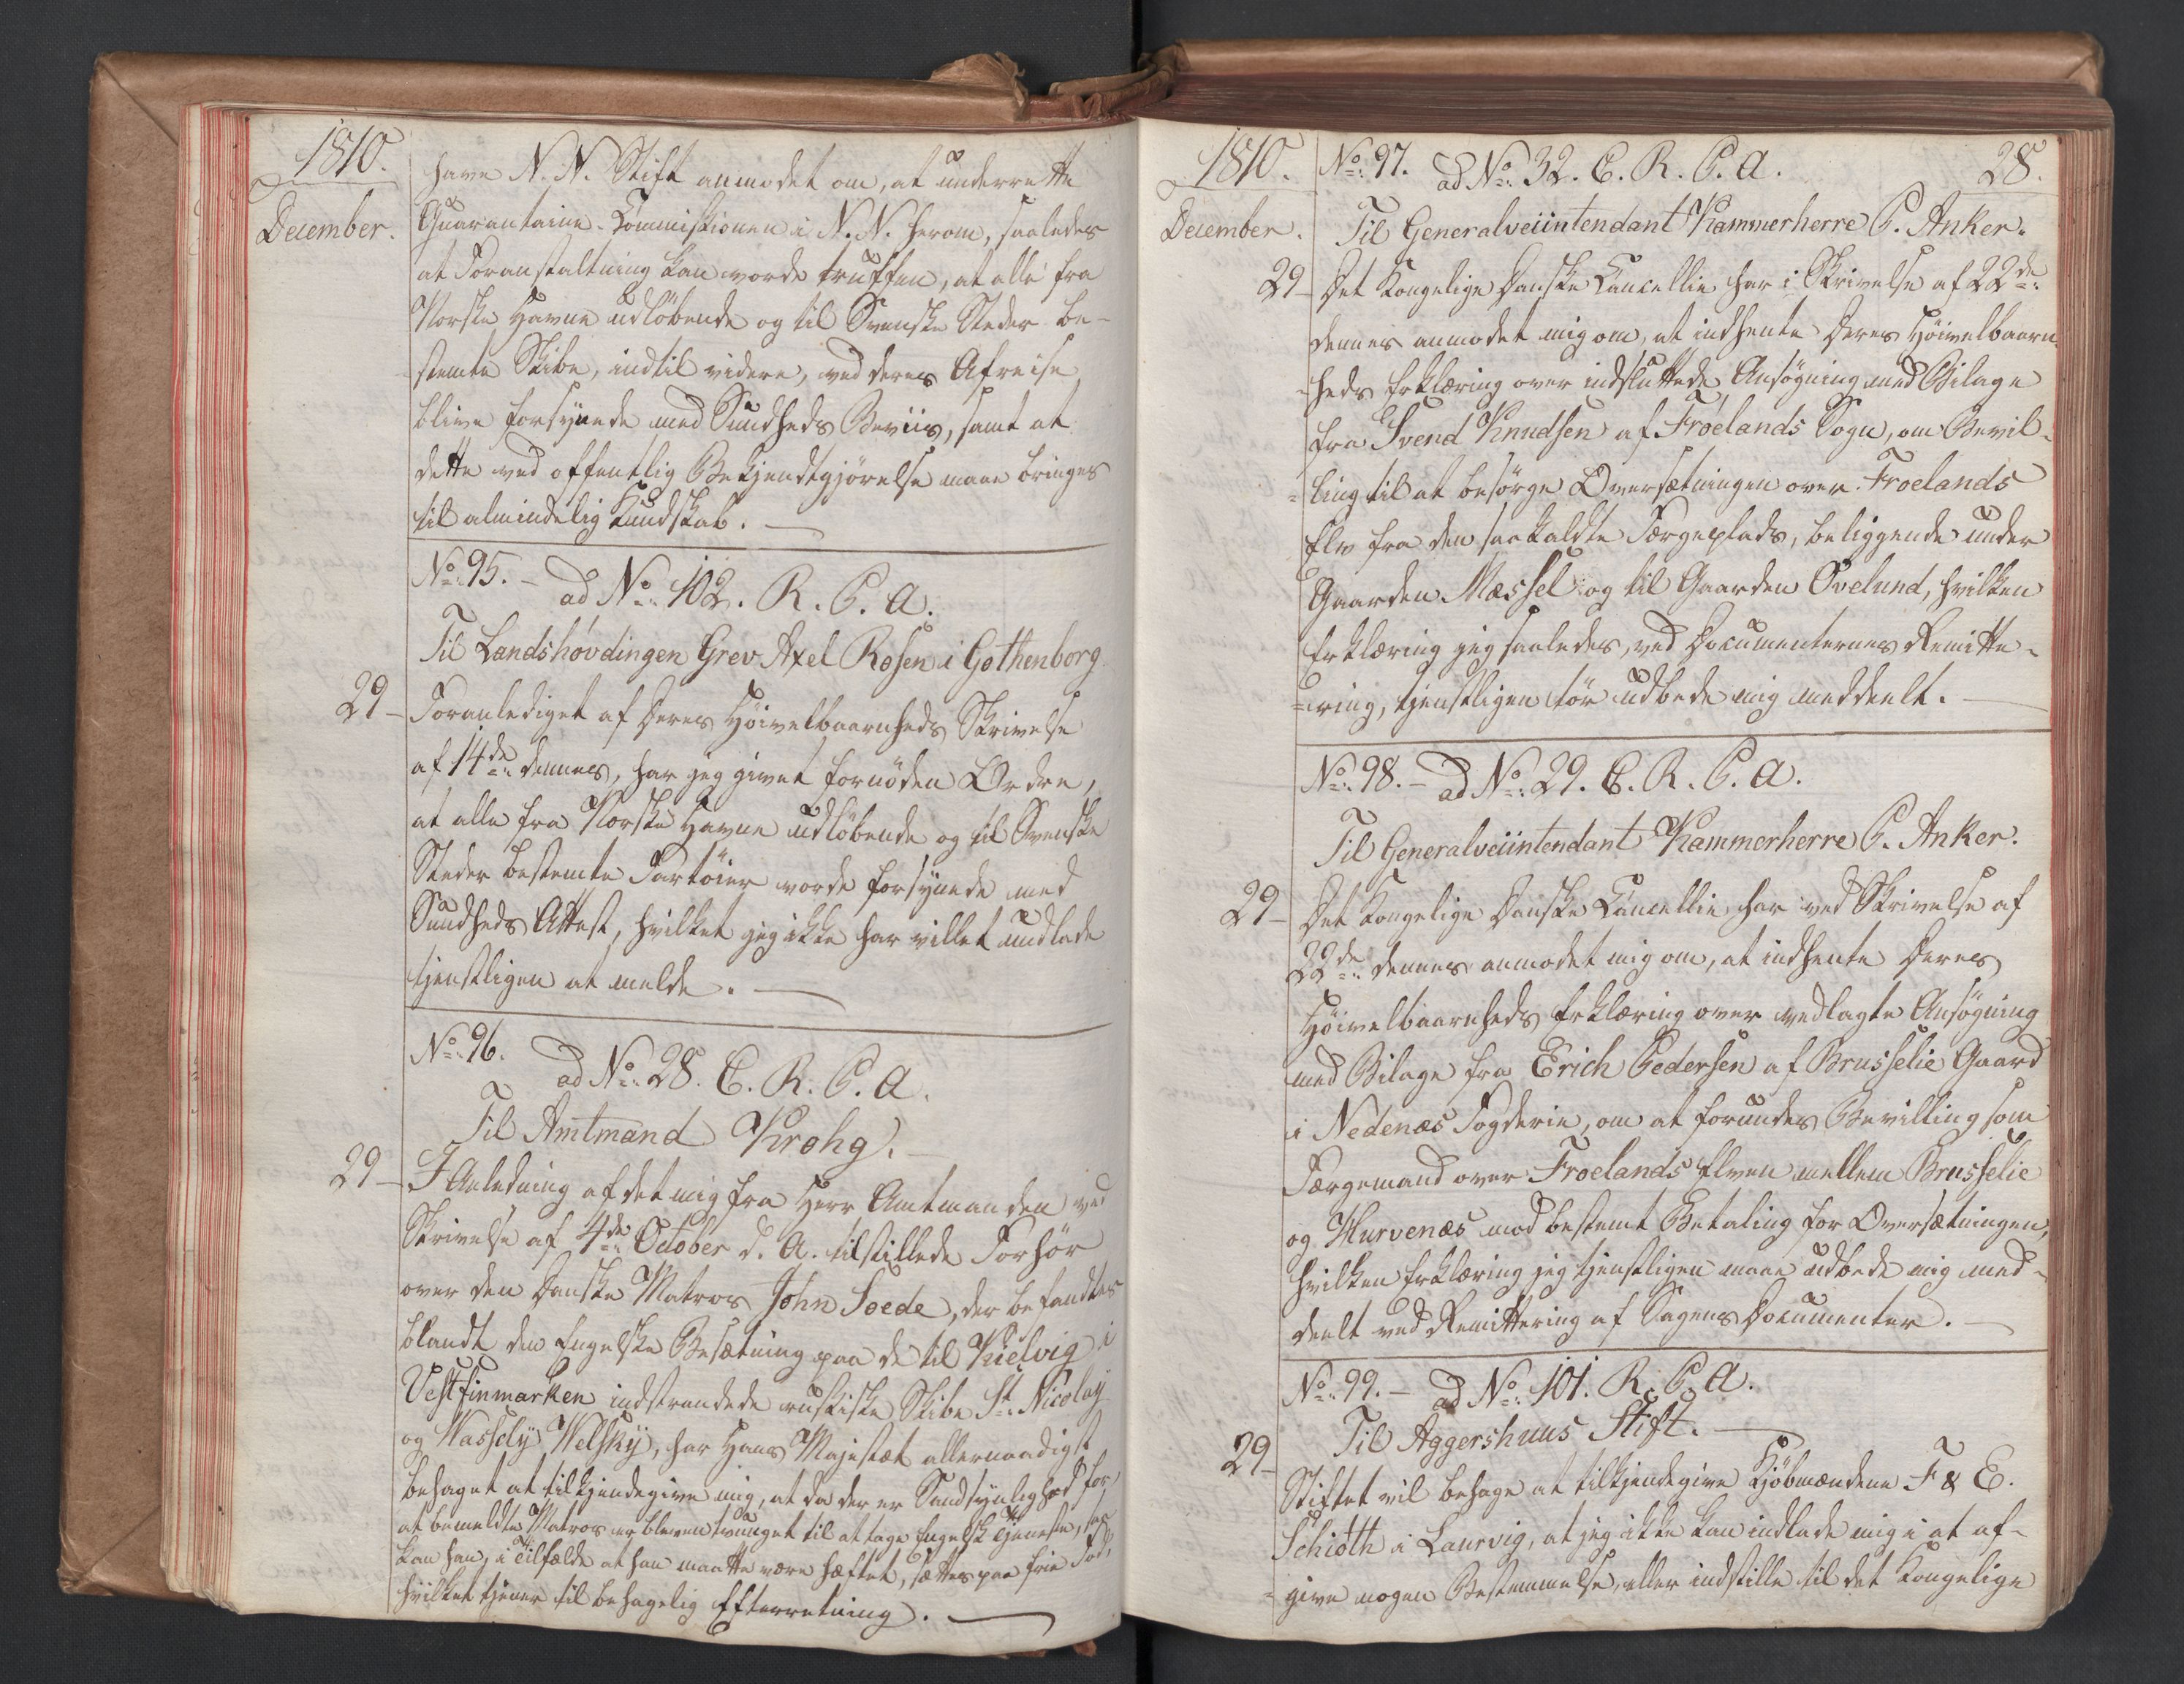 1810.
December.
have N. N. Stift anmodet om, at underrette
Quarantaine-Commissionen i N. N. herom, saaledes
at Foranstaltning kan worde truffen, at alle fra
Norske Havne udlöbende og til Svenske Steder be-
stemte Skibe, indtil videre, ved deres Afreise
blive forsynede med Sundheds Beviis, samt at
dette ved offentlig Bekjendtgjörelse maae bringes
til almindelig Kundskab.
No. 95. - ad No. 102. R. P. A.
Til Landshövdingen Grev Axel Rosen i Gothenborg
29 - Foranlediget af Deres Höivelbaarenheds Skrivelse
af 14de dennes, har jeg givet fornöden Ordre,
at alle fra Norske Havne udlöbende og til Svenske
Steder bestemte Fartöier worde forsynede med
Sundheds Attest, hvilket jeg ikke har villet undlade
tjenstligen at melde.
No. 96. ad No. 28. C. R. P. A.
Til Amtmand Krohg.
29 - I Anledning af det mig fra Herr Amtmanden ved
Skrivelse af 4de October d. A. tilstillede Forhör
over den Danske Matros John Soede, der befandtes
blandt den Engelske Besætning paa de til Kielvig i
Vestfinmarken indstrandede russiske Skibe St. Nicolay
og Wassely Welsky, har Hans Majestæt allernaadigst
behaget at tilkjendegive mig, at da der er Sandsynlighed for,
at bemeldte Matros er bleven tvunget til at tage Engelsk Tjeneste, saa
kan han, i Tilfælde at han maatte være hæftet, sættes paa frie Fod,
hvilket tjener til behagelig Efterretning.
1810.
December.
28.
No. 97. ad No. 32. C. R. P. A.
Til Generalveiintendant Kammerherre P. Anker.
29 - Det Kongelige Danske Cancellie har i Skrivelse af 22de
dennes anmodet mig om, at indhente Deres Höivelbaaren-
heds Erklæring over indsluttede Ansögning med Bilage
fra Svend Knudsen af Froelands Sogn, om Bevil-
ling til at besörge Oversætningen over Froelands
Elv fra den saakaldte Færgeplads, beliggende under
Gaarden Mæssel og til Gaarden Ovelund, hvilken
Erklæring jeg saaledes, ved Documenternes Remitte-
ring, tjenstligen tör udbede mig meddeelt.
No. 98. - ad No. 29. C. R. P. A.
Til Generalveiintendant Kammerherre P. Anker.
29 - Det Kongelige Danske Cancellie har ved Skrivelse af
22de dennes anmodet mig om, at indhente Deres
Höivelbaarenheds Erklæring over vedlagte Ansögning
med Bilage fra Erich Pedersen af Brusselie Gaard
i Nedenæs Fogderie, om at forundes Bevilling som
Færgemand over Froelands Elven mellem Brusselie
og Hurvenæs mod bestemt Betaling for Oversætningen,
hvilken Erklæring jeg tjenstligen maae udbede mig med-
deelt ved Remittering af Sagens Documenter.
No. 99. - ad No. 101. R. P. A.
Til Aggershuus Stift.
29 - Stiftet vil behage at tilkjendegive Kjöbmændene F & E.
Schiöth i Laurvig, at jeg ikke kan indlade mig i at af-
give nogen Bestemmelse, eller indstille til det Kongelige